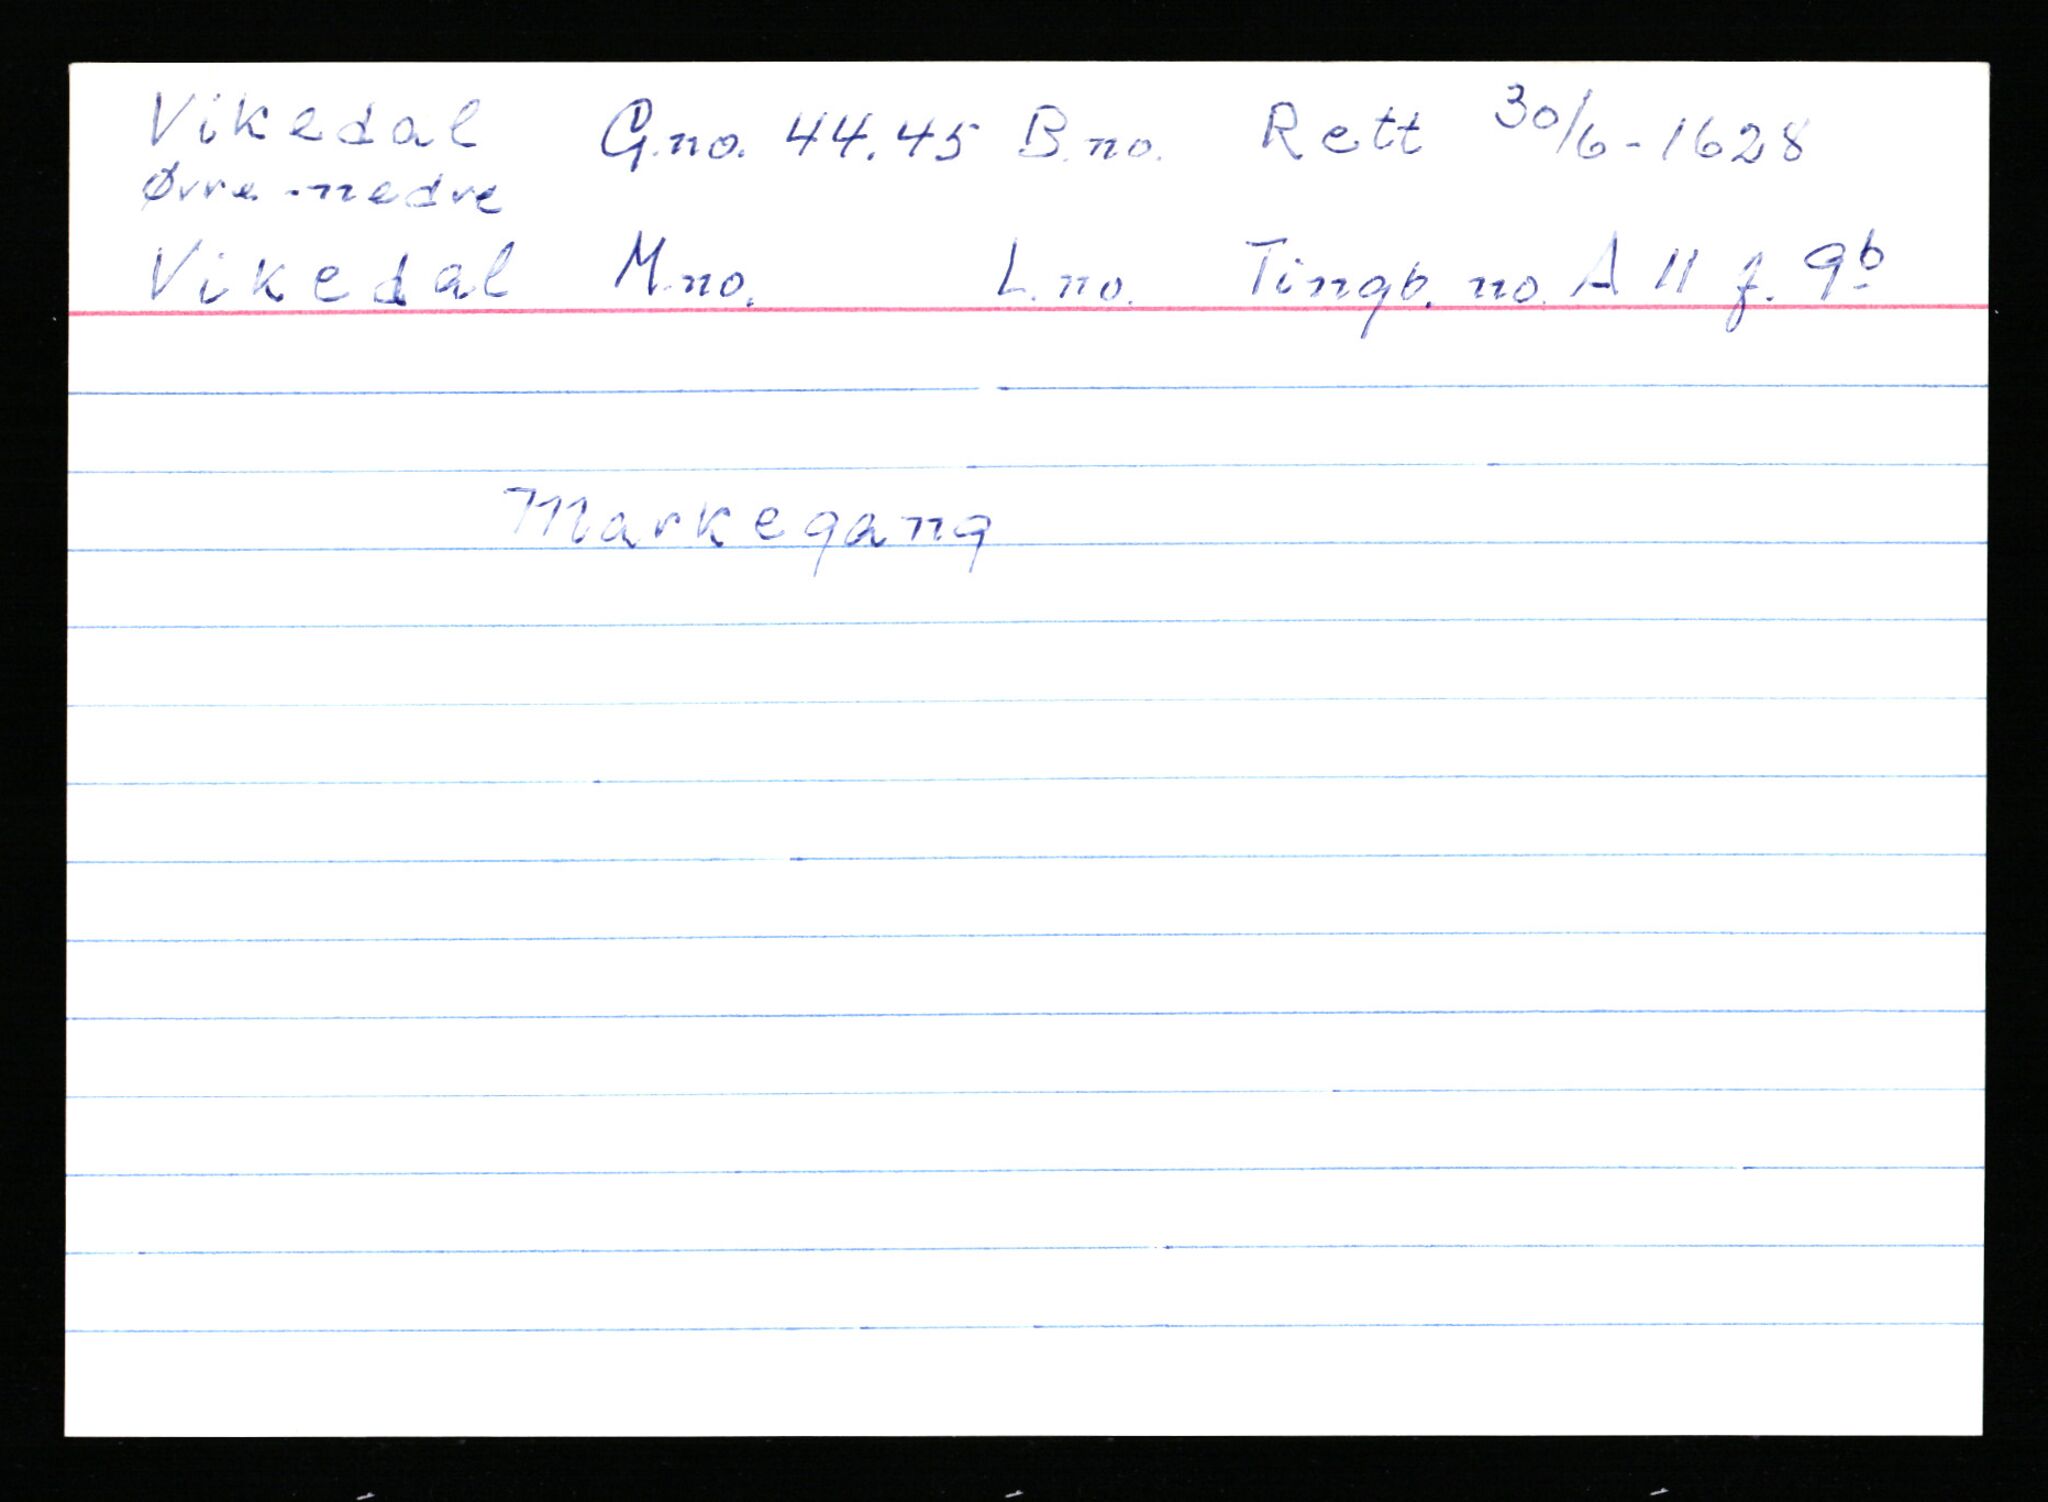 Vikedal G.no. 44.45 B.no. Rett 30/6-1628
Øvre-nedre
Vikedal M.no. L.no. Tingb. no. A 11 f. 9b
Markegang